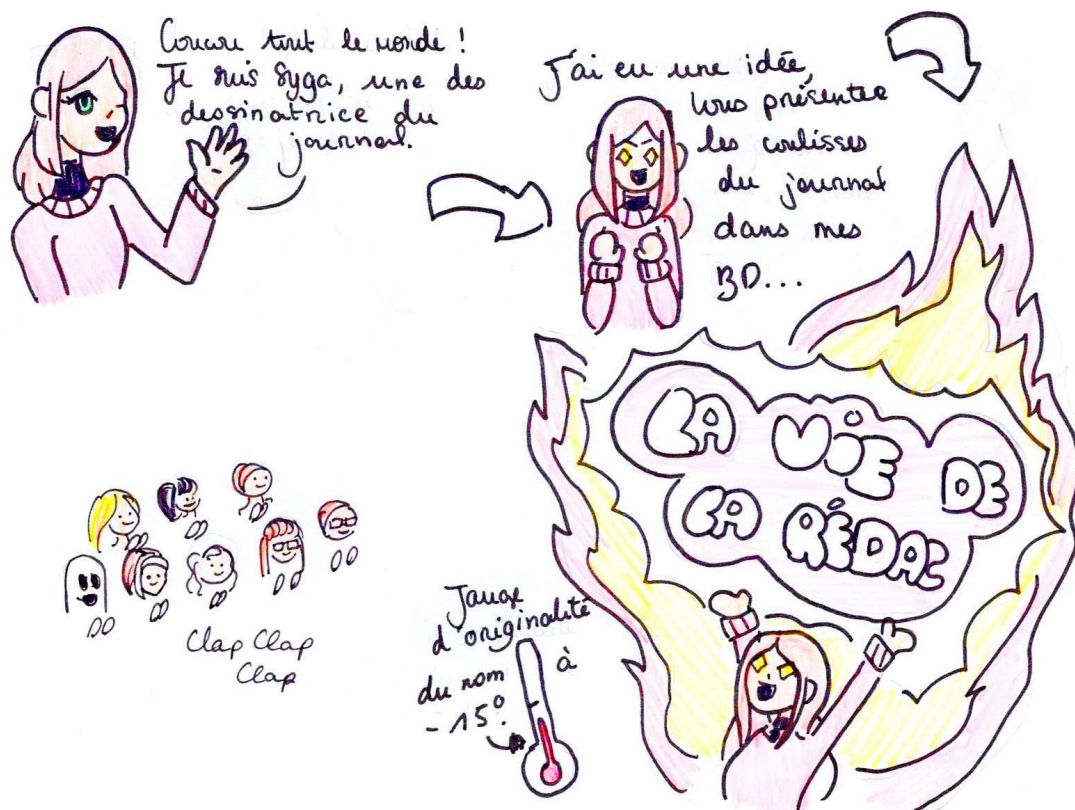 Coucou tout le monde !
Je suis Syga, une des
dessinatrice du
journal.
J'ai eu une idée,
vous présenter
les coulisses
du journal
dans mes
BD...
LA VIE DE
LA RÉDAC
Jauge
d'originalité
du nom à
-15°
Clap Clap
Clap